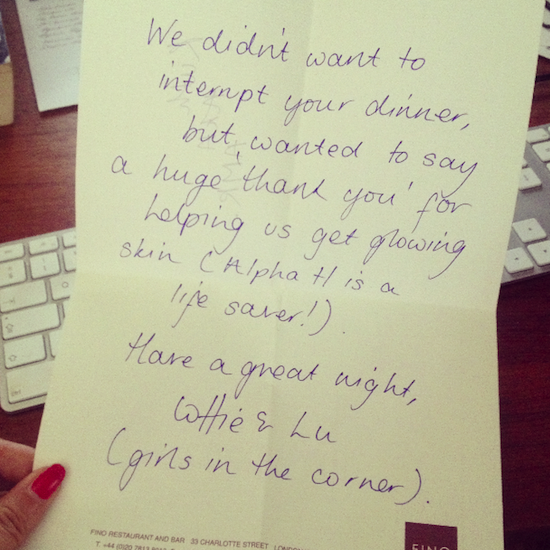 We didn't want to
interrupt your dinner,
but wanted to say
a huge 'thank you' for
helping us get glowing
skin (Alpha H is a
life saver!).
Have a great night,
Lottie & Lu
(girls in the corner).
FINO RESTAURANT AND BAR 33 CHARLOTTE STREET
FINO